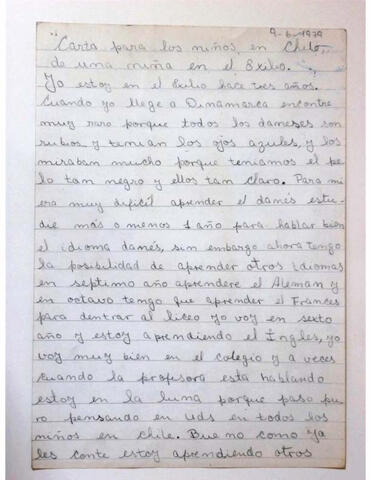 9-6-1979
"Carta para los niños, en Chile,
de una niña en el Exilio.
Yo estoy en el Exilio hace tres años.
Cuando yo llege a Dinamarca encontre
muy raro porque todos los daneses son
rubios y tenian los ojos azules, y los
miraban mucho porque teniamos el pe
lo tan negro y ellos tan claro. Para mi
era muy dificil aprender el danés estu-
die más o menos 1 año para hablar bien
el idioma danés, sin embargo ahora tengo
la posibilidad de aprender otros idiomas
en septimo año aprendere el Aleman y
en octavo tengo que aprender el Frances
para dentrar al liceo yo voy en sexto
año y estoy aprendiendo el Ingles, yo
voy muy bien en el colegio y a veces
cuando la profesora esta hablando
estoy en la luna porque paso pu
ro pensando en uds en todos los
niños en chile. Bueno como ya
les conte estoy aprendiendo otros